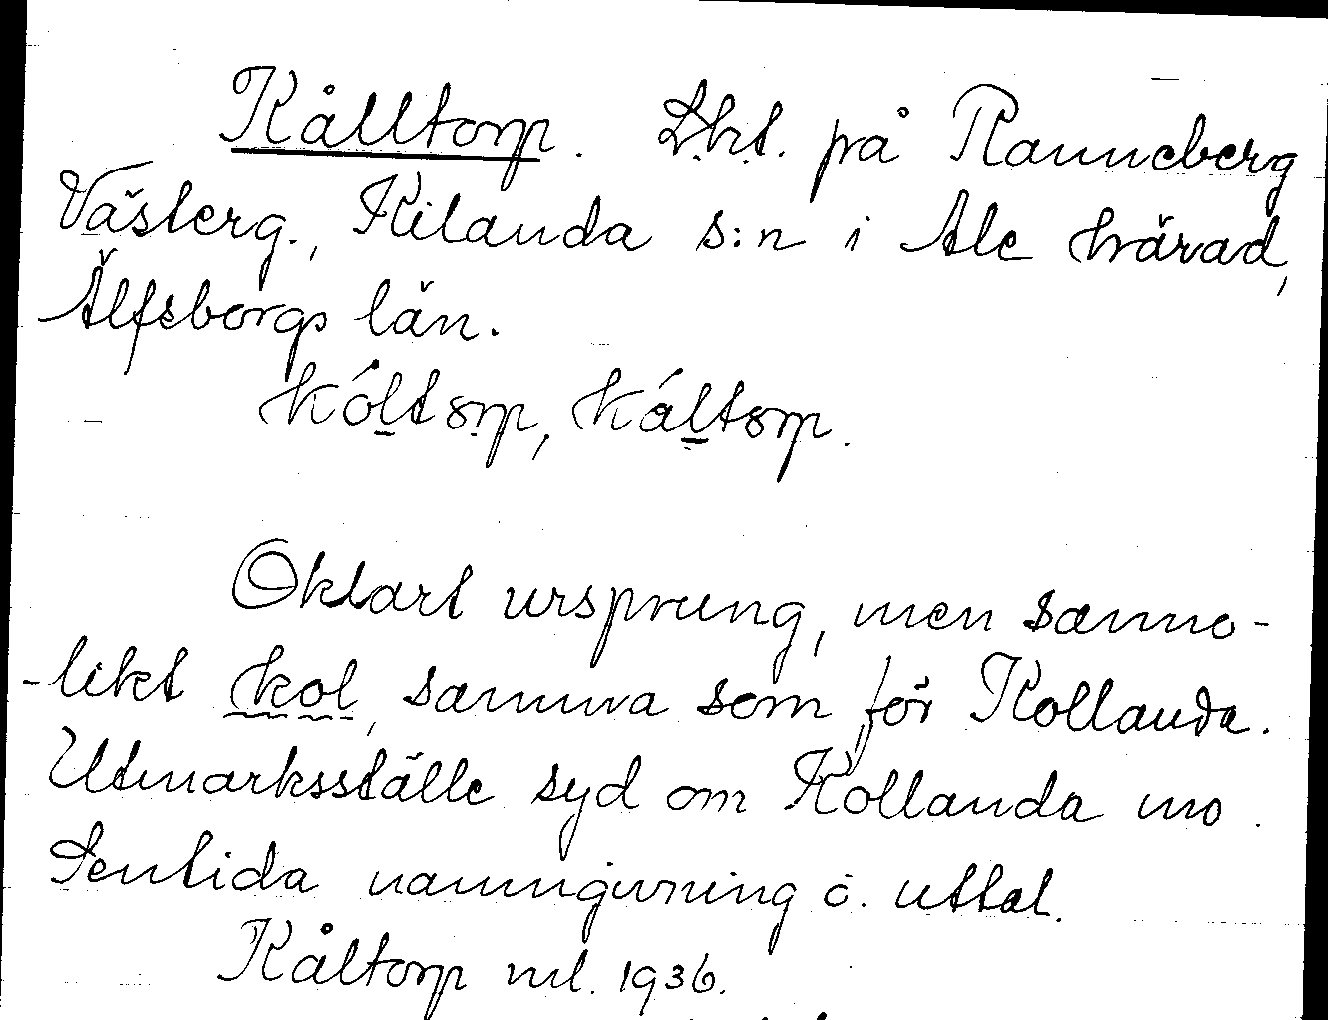 Kålltorp. Lht. på Ranneberg
Västerg., Kilanda s:n i Ale härad,
Älfsborgs län.
kóltorp, káltorp.
Oklart ursprung, men sanno-
-likt kol, samma som för Kollanda.
Utmarksställe syd om Kollanda mo.
Sentida namngivning o. uttal.
Kåltorp ml. 1936.